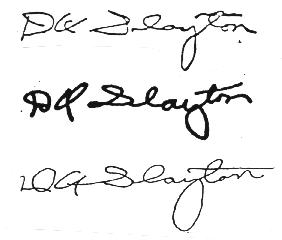 DK Slayton
DK Slayton
DK Slayton